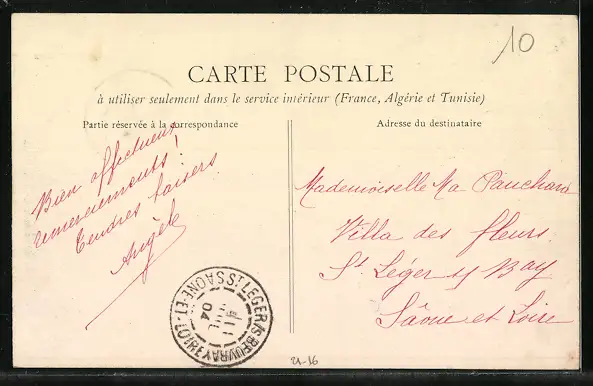 10
CARTE POSTALE
à utiliser seulement dans le service intérieur (France, Algérie et Tunisie)
Partie réservée à la correspondance
Adresse du destinataire
Bien affectueux
remerciements !
Tendres baisers
Angèle
Mademoiselle Ma Panchard
Villa des fleurs.
St. Léger s/ Bay
Saône et Loire
ST LEGER S BEUVRAY SAONE-ET-LOIRE
04
21-16